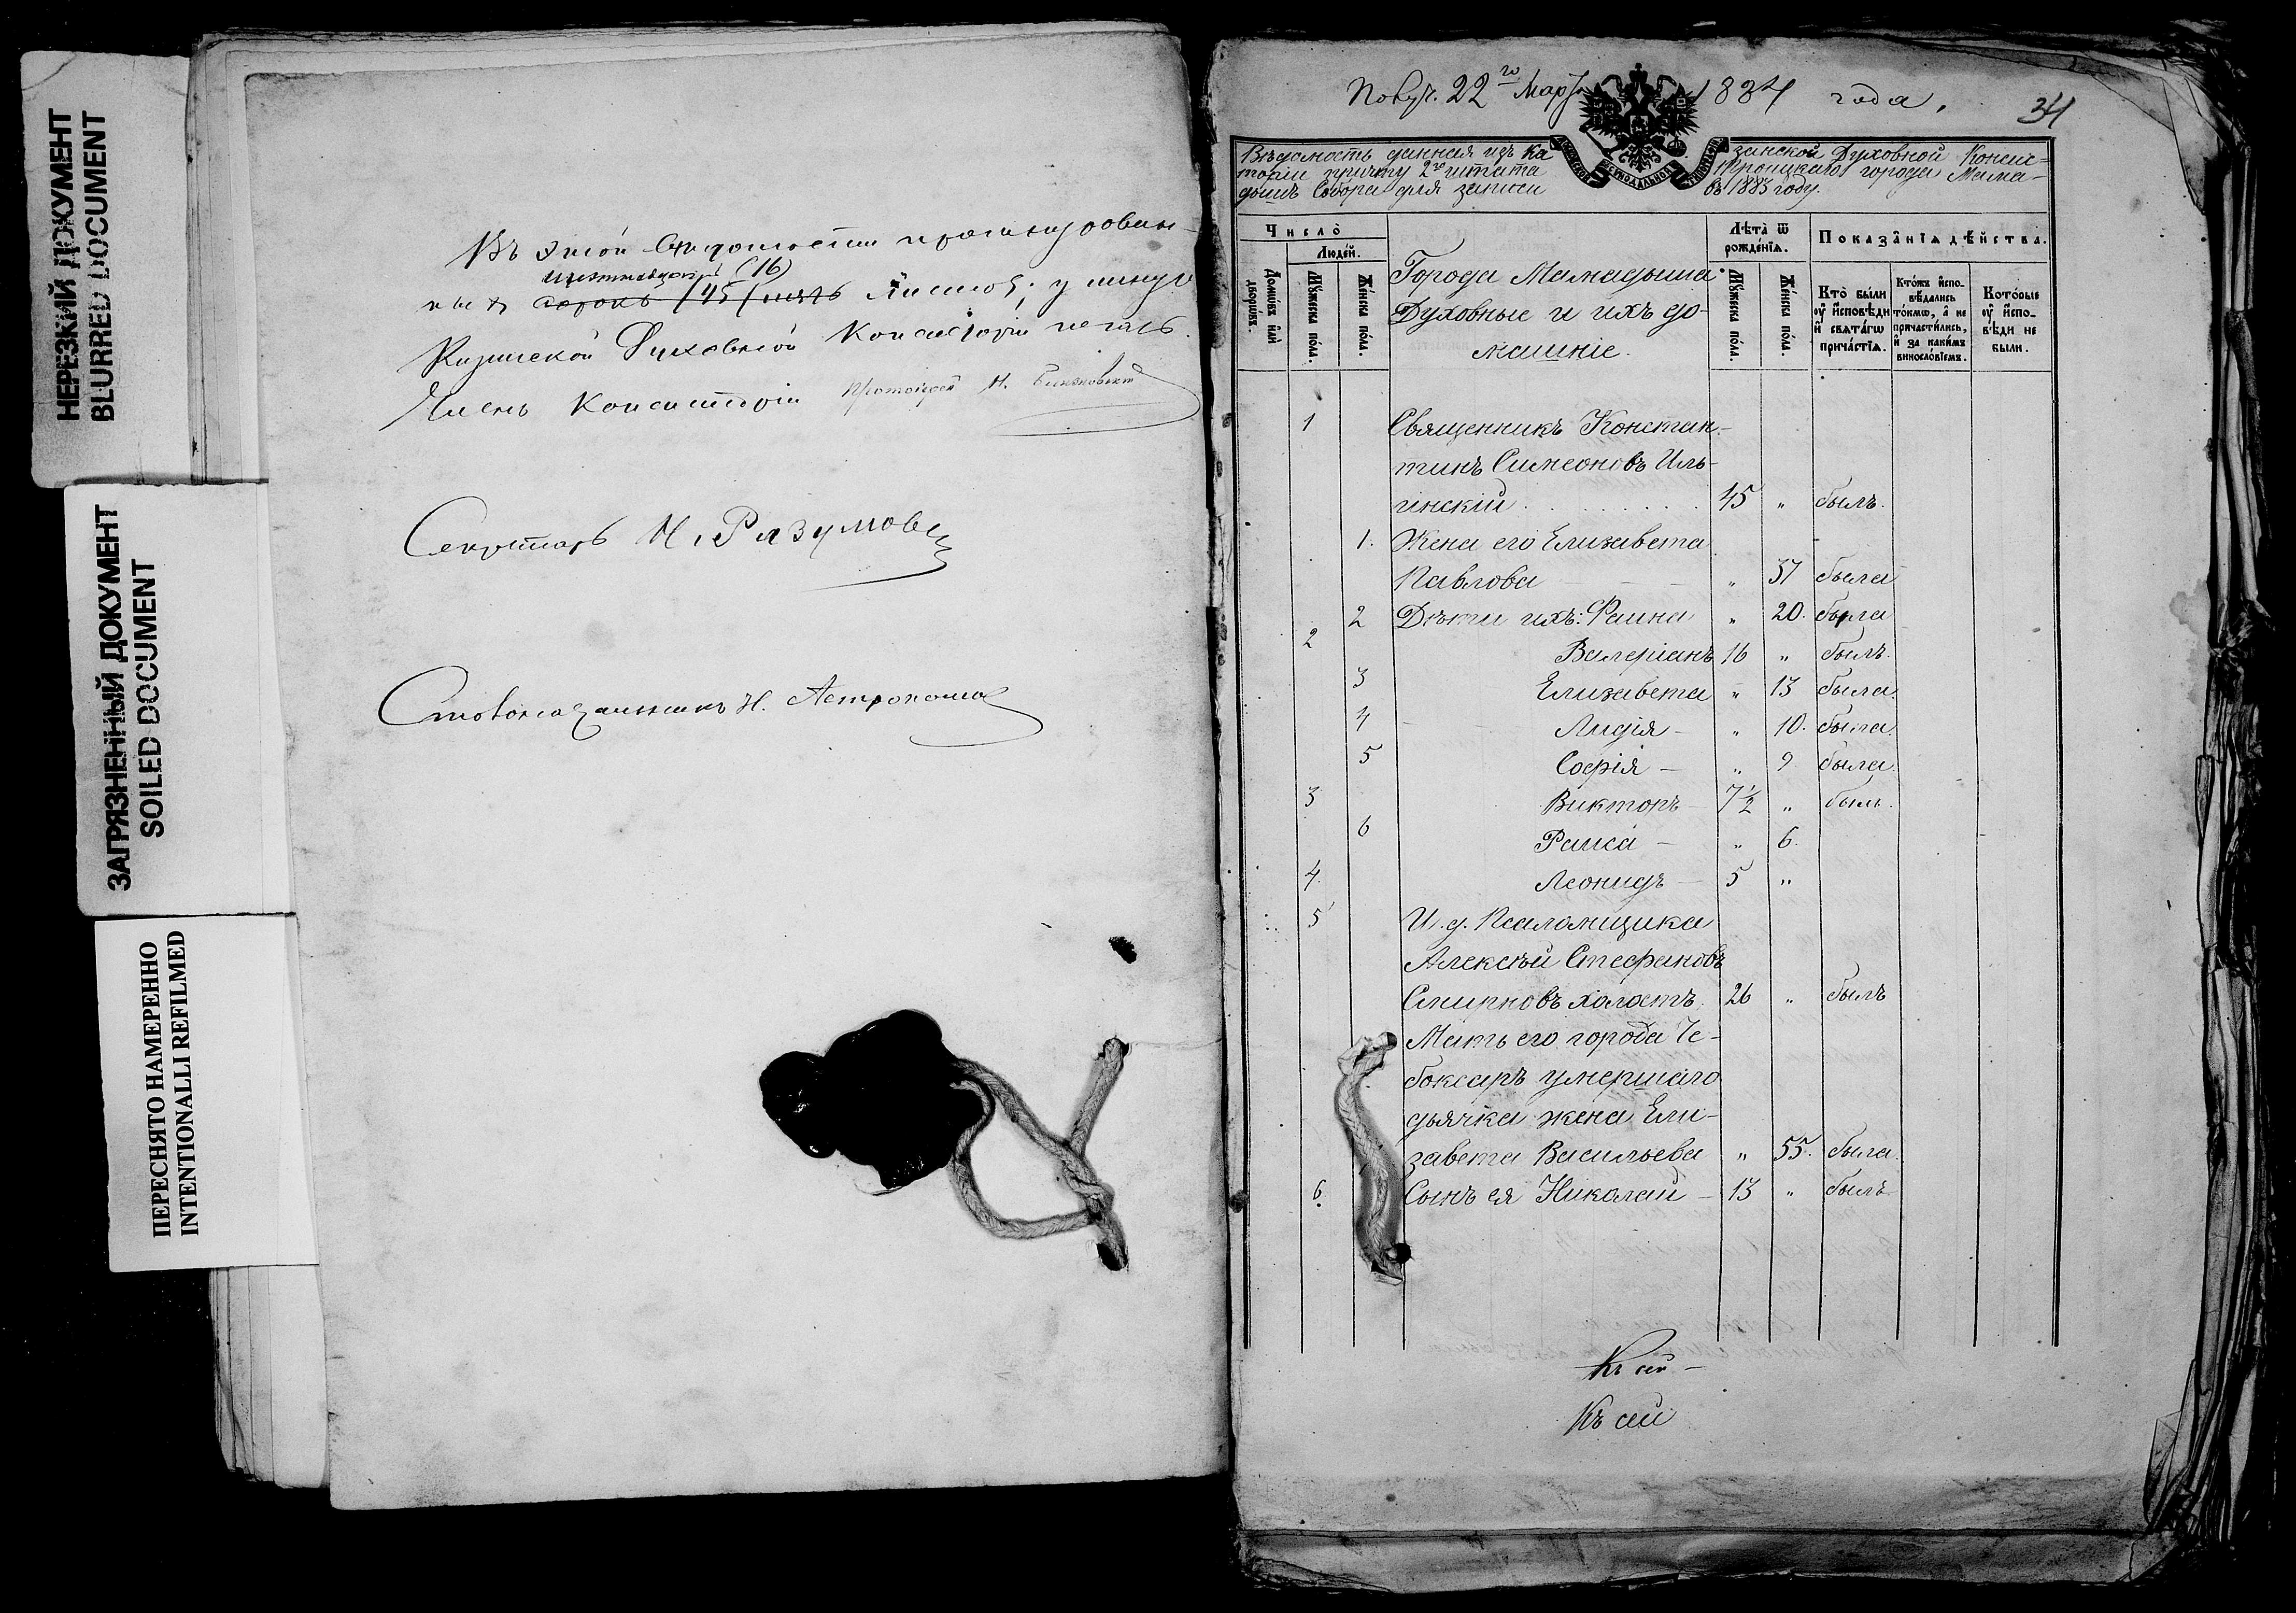 НЕРЕЗКИЙ ДОКУМЕНТ
BLURRED DOCUMENT
ЗАГРЯЗНЕННЫЙ ДОКУМЕНТ
SOILED DOCUMENT
ПЕРЕСНЯТО НАМЕРЕННО
INTENTIONALLI REFILMED
Въ этой
(16)
сорокъ (45) пять листовъ; у шнура
Казанской Духовной Консисторіи печать.
Членъ Консисторіи Протоіерей
Секретарь Н. Разумовъ
Столоначальникъ Н. Астрономовъ
Получ. 22го Марта 1884 года.
34
Вѣдомость данная изъ Казанской Духовной Консис=
торіи причту 2го штата Троицкаго города Мама-
дышъ Собора для записи въ 1883 году.
Число̀
Лѣта̀ ѿ рожде́нїѧ.
Показа̑нїѧ дѣ́йства.
Людей.
Домѡ́въ и҆лѝ дворѡ́въ.
Мꙋ́жеска по́ла.
Же́нска по́ла.
Города Мамадыша
Духовные и ихъ до-
машніе.
Мꙋ́жеска по́ла.
Же́нска по́ла.
Кто̀ бы́ли ᲂу҆ и҆сповѣ́ди и҆ свѧта́гѡ причаⷭ҇тїѧ.
Кто́жъ и҆сповѣ́дались то́кмѡ, а҆ не причасти́лись, и҆ за каки́мъ винослѡ́вїемъ.
Кото́рые ᲂу҆ и҆спо́вѣди не бы́ли.
1 Священникъ Констан-
тинъ Симеоновъ Иль-
инскій . . . . . . . . 45 „ былъ.
1. Жена его Елизавета
Павлова — — — „ 37 была
2 Дѣти ихъ: Фаина „ 20. была
2 Валеріанъ 16 „ былъ.
3 Елизавета „ 13 была.
4 Лидія — „ 10. была.
5 Софія — „ 9 была.
3 Викторъ — 7 1/2 „ былъ.
6 Раиса — „ 6.
4. Леонидъ — 5 „
5 И. д. Псаломщика
Алексѣй Стефановъ
Смирновъ холостъ. 26 „ былъ
Мать его города Че-
боксаръ умершаго
дьячка жена Ели-
завета Васильева „ 55. была.
6. Сынъ ея Николай — 13 „ былъ
Къ сей —
Къ сей